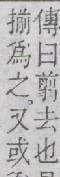 傳曰翦去也
揃爲之又或